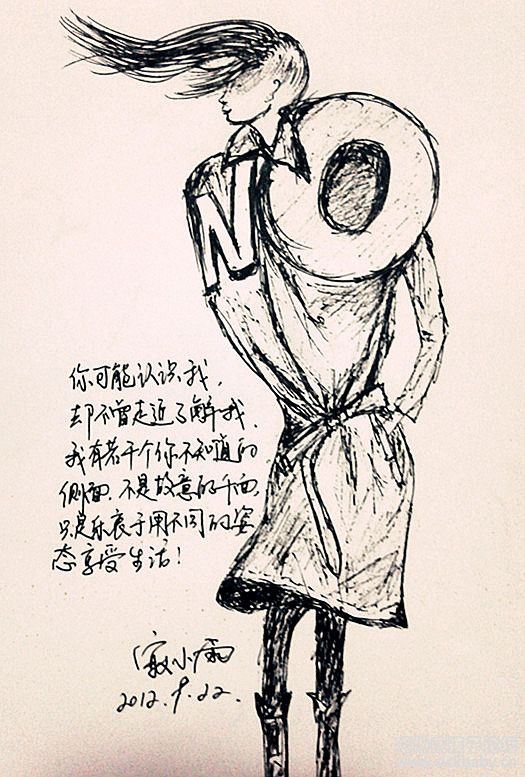 NO
你可能认识我，
却不曾走近了解我，
我有若干个你不知道的
侧面，不是故意的千面，
只是乐衷于用不同的姿
态享受生活！
小雨
2012.9.22.